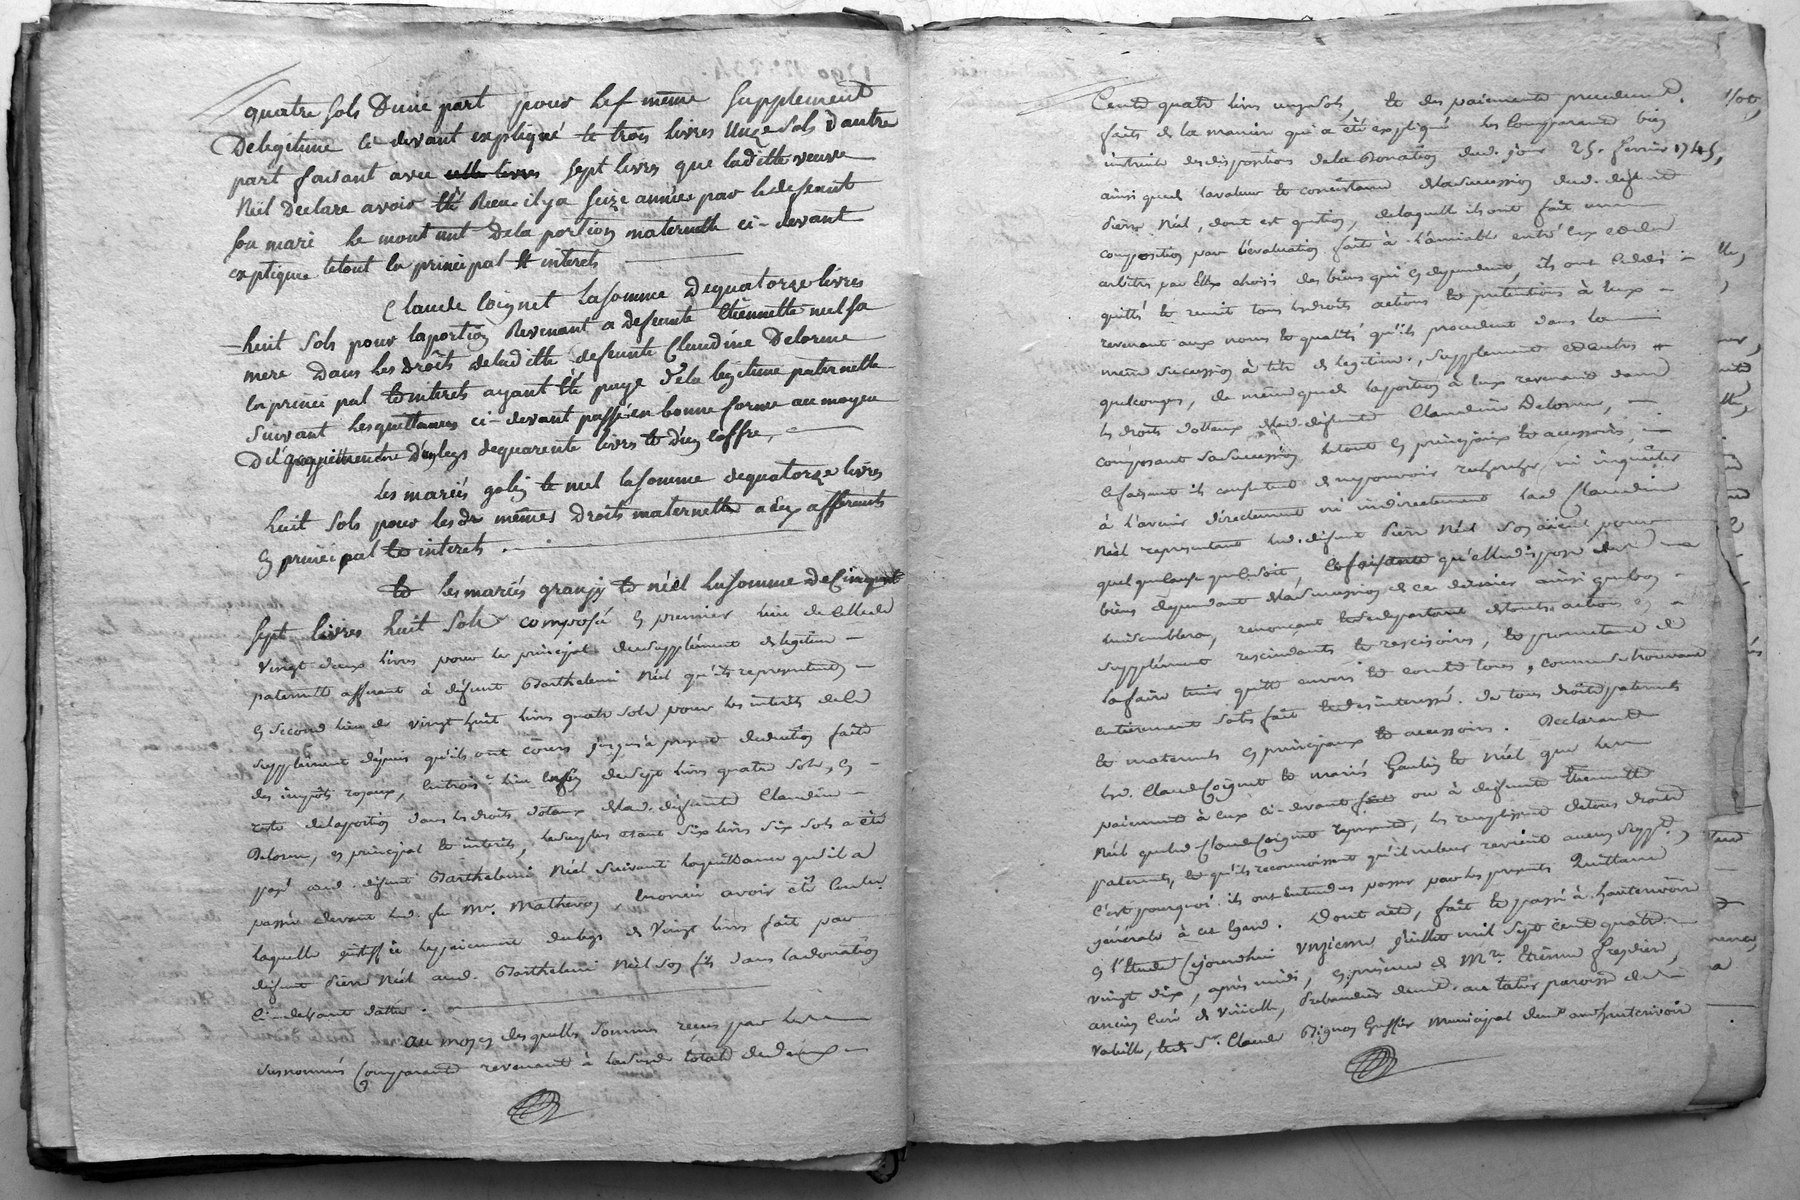 quatre sols Dune part pour les même supplement
Delegitime ci devant expliqué et trois livres Unze sols d'autre
part faisant avec sept livres que laditte veuve
Néel Declare avoir été Reçu il ya seize années par ledefeunt
son mari le montant Dela portion maternelle ci-devant
expliquée letout en principal et interets
Claude Coignet lasomme Dequatorze livres
huit sols pour laportion Revenant a defeunte Etiennette neel sa
mere Dans les Droits deladitte defeunte Claudine Delorme
en principal et interets ayant été payé de la legitime paternelle
suivant les quittances ci-devant passées en bonne forme au moyen
D'un legs dequarente livres et d'un coffre,
les mariés golin et neel lasomme dequatorze livres
huit sols pour les mêmes Droits maternelle a Eux afferents
en principal et interets.
et les mariés granjy et néel lasomme de Cinquante
sept livres huit sols composée en premier lieu de celle de
vingt deux livres pour le principal du supplément de légitime
paternelle afferant à défunt Barthelemi Néel qu'ils représentent
en second lieu de vingt huit livres quatre sols pour les intérêts de ce
supplément depuis qu'ils ont cours jusqu'à présent deduction faite
des impôts royaux, de sept livres quatre sols, en
reste de la portion dans les droits dotaux de lad. défunte Claudine
Delorme, en principal et intérêts, le surplus etant six livres six sols a été
payé aud. défunt Barthelemi Néel suivant la quittance qu'il a
passée devant led. feu Me. Mathevon avoir été
laquelle le paiement du legs de vingt livres fait par
défunt Pierre Néel aud. Barthelemi Néel son fils dans la donation
ci-devant dattée.
au moyen desquelles sommes reçues par les
susnommés Comparants revenant à la somme totale de deux
Cents quatre livres onze sols, et des paiements precedemt.
faits de la maniere qui a été expliqué les Comparants bien
instruits des dispositions de la Donation dud. jour 25. fevrier 1745,
ainsi que de la valeur et consistance de la succession dud. défunt
Pierre Néel, dont est question, de laquelle ils ont fait une
composition par l'évaluation faite à l'amiable entre eux et de
arbitres par Eux choisis des biens qui en dependent, ils ont cédé
quitté et remit tous les droits actions et pretentions à eux
revenant aux noms et qualités qu'ils procedent dans la
même succession à titre de legitime, supplement et autres
quelconques, de même que la portion à eux revenant dans
les droits dotaux de lad. défunte Claudine Delorme,
composant sa succession le tout en principaux et accessoires,
ce faisant ils consentent de ne pouvoir rechercher ni inquieter
à l'avenir directement ni indirectement lad. Claudine
Néel representant led. défunt Pierre Néel son aieul pour
quelque cause que ce soit, qu'elle dispose des
biens dependant de la succession de ce dernier ainsi que bon
lui semblera, renonçant et se departant de toutes actions en
supplément rescindants et rescisoires, et promettent de
la faire tenir quitte envers et contre tous, comme se trouvant
entièrement satisfait et desinteressé de tous droits paternels
et maternels en principaux et accessoires. Declarant
led. Claude Coignet et mariés Gaulin et Néel que les
paiements à eux ci-devant ou à défunte Etiennette
Néel que led. Claude Coignet represente, les remplissent de tous droits
paternels, et qu'ils reconnoissent qu'il ne leur revient aucun supplt.,
C'est pourquoi ils ont entendu passer par les presentes Quittance
générale à cet égard. Dont acte, fait et passé à hauterivoire
en l'Etude Cejourdhui Unzieme Juillet mil sept cent quatre
vingt dix, après midi, en presence de Mre. Etienne
ancien Curé de Viricelle, Prebendier demt. au paroisse de
et de Sr. Claude Bignon Greffier Municipal demt. aud. hauterivoire